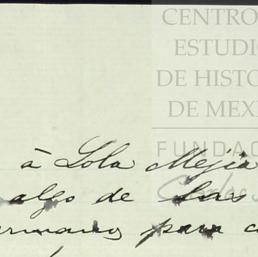 CENTRO
ESTUDIO
DE HISTO
DE MEX
FUNDAC
Carlos
à Lola Mejia
algo de las
ermano para c